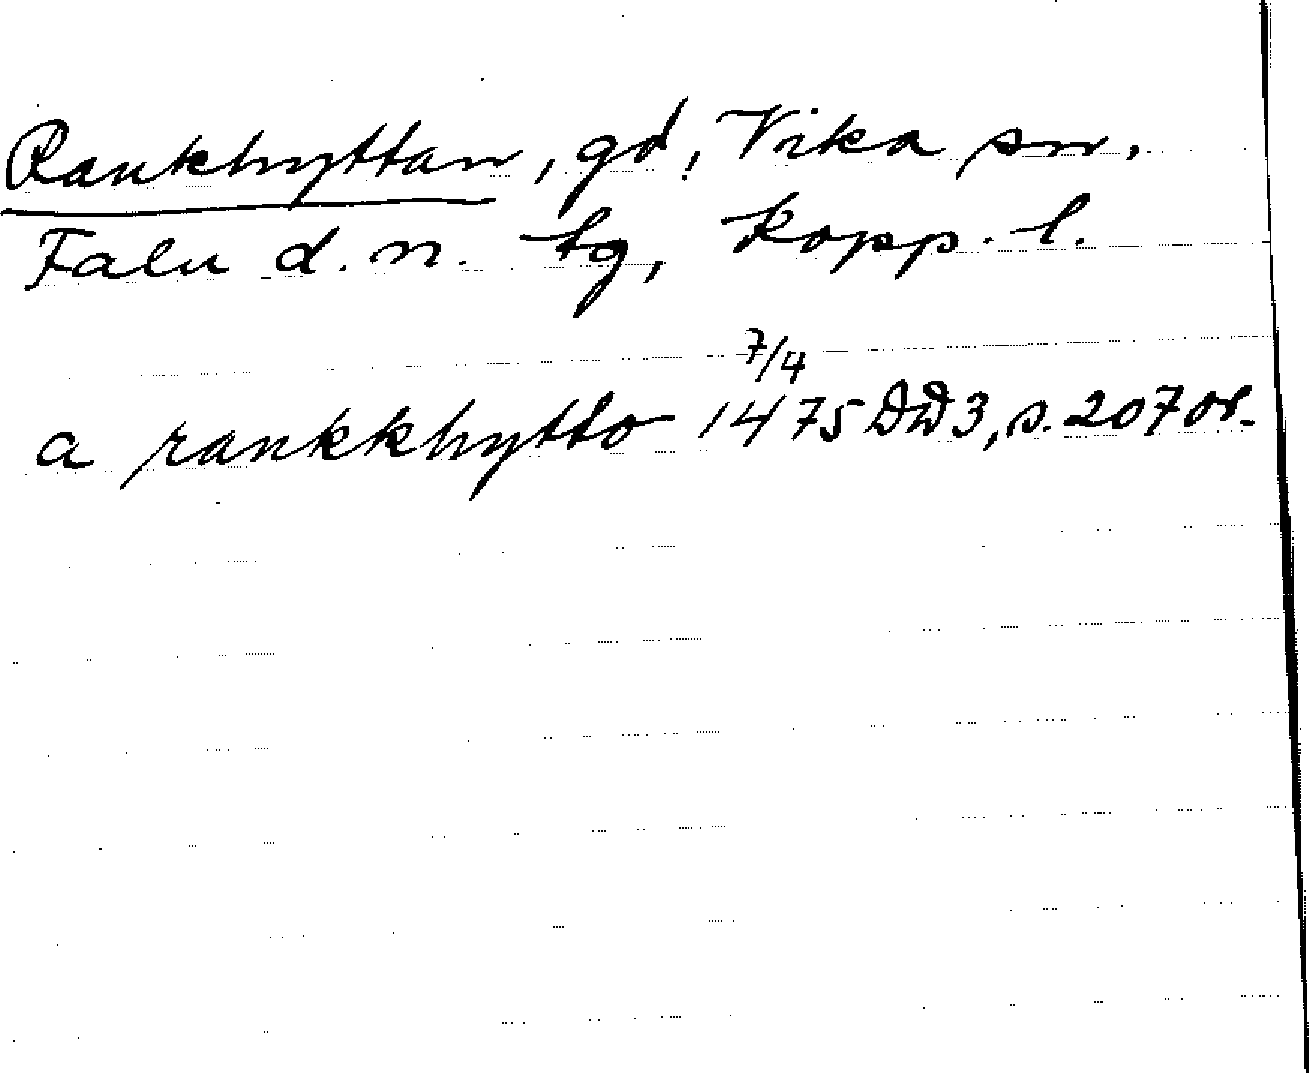 Rankhyttan, gd, Vika sn.
Falu d.n. tg, Kopp. l.
7/4
a rankkhytto 1475 DD 3, s. 207 or.